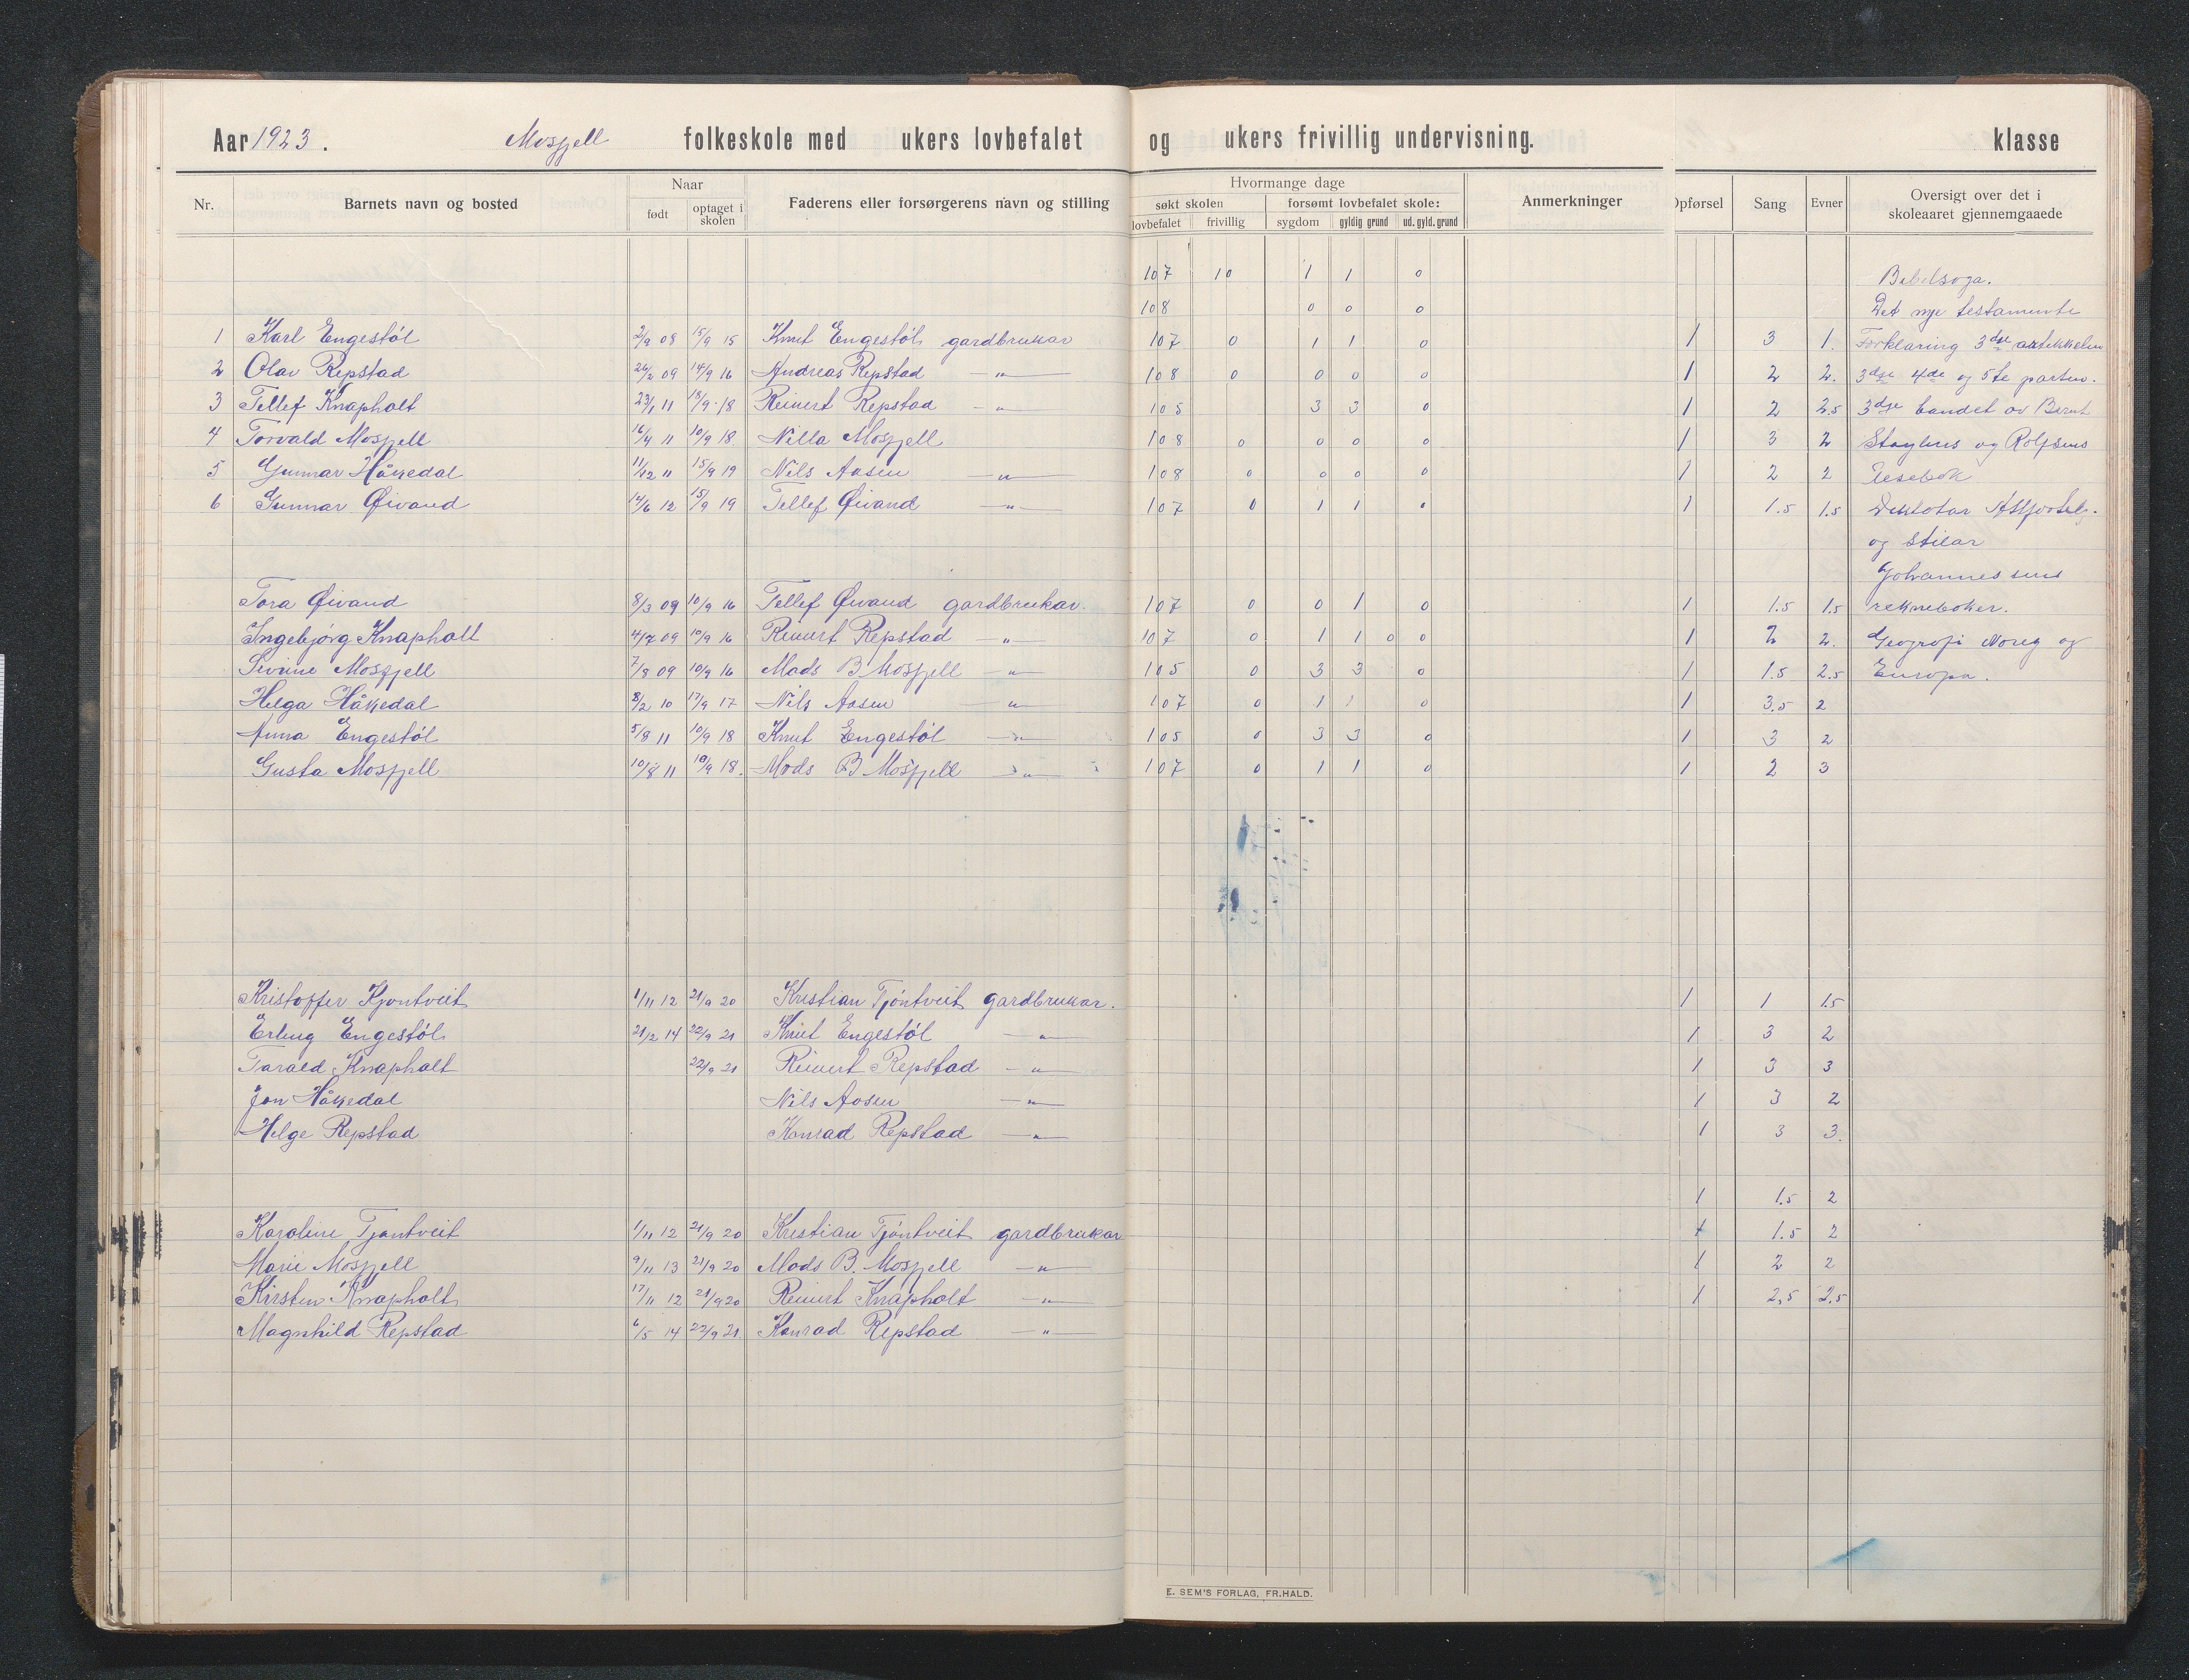 Aar 1923. Mosfjell folkeskole med ukers lovbefalet og ukers frivillig undervisning. klasse
Nr. Barnets navn og bosted Naar Faderens eller forsørgerens navn og stilling Hvormange dage Anmerkninger Opførsel Sang Evner Oversigt over det i skoleaaret gjennemgaaede
født optaget i skolen søkt skolen forsømt lovbefalet skole:
lovbefalet frivillig sygdom gyldig grund ud. gyld. grund
107 10 1 1 0 Bibelsoga.
108 0 0 0 Det nye testamente
1 Karl Engestøl 2/9 08 15/9 15 Knut Engestøl gardbrukar 107 0 1 1 0 1 3 1. Forklaring 3dje artikkelen
2 Olav Repstad 26/2 09 14/9 16 Andreas Repstad —"— 108 0 0 0 0 1 2 2. 3dje 4de og 5te parten.
3 Tellef Knapholt 23/1 11 18/9 18 Reinert Repstad —"— 105 3 3 0 1 2 2.5 3dje bandet av Bernt
4 Torvald Mosfjell 16/4 11 10/9 18. Nilla Mosfjell 108 0 0 0 0 1 3 2 Støylens og Rolfsens
5 Gunnar Håkedal 11/12 11 15/9 19 Nils Aasen —"— 108 0 0 0 0 1 2 2 Lesebok
6 Gunnar Øivand 14/6 12 15/9 19 Tellef Øivand —"— 107 0 1 1 0 1 1.5 1.5 Diktatar
og stilar
Johannessens
Tora Øivand 8/3 09 10/9 16 Tellef Øivand gardbrukar. 107 0 0 1 0 1 1.5 1.5 reknebøker.
Ingebjørg Knapholt 4/7 09 10/9 16 Reinert Repstad —"— 107 0 1 1 0 0 1 2 2. Geografi Noreg og
Sivine Mosfjell 7/8 09 10/9 16 Mads B Mosfjell —"— 105 0 3 3 0 1 1.5 2.5 Europa.
Helga Håkedal 8/2 10 17/9 17 Nils Aasen —"— 107 0 1 1 0 1 3.5 2
Anna Engestøl 5/8 11 10/9 18 Knut Engestøl —"— 105 0 3 3 0 1 3 2
Gusta Mosfjell 10/8 11 10/9 18. Mads B Mosfjell —"— 107 0 1 1 0 1 2 3
Kristoffer Kjøntveit 1/11 12 21/9 20 Kristian Tjøntveit gardbrukar. 1 1 1.5
Erling Engestøl 21/2 14 22/9 21 Knut Engestøl —"— 1 3 2
Tarald Knapholt 22/9 21 Reinert Repstad —"— 1 3 3
Jon Håkedal Nils Aasen —"— 1 3 2
Helge Repstad Konrad Repstad —"— 1 3 3.
1 1.5 2
Karoline Tjøntveit 1/11 12 21/9 20 Kristian Tjøntveit gardbrukar 1 1.5 2
Marie Mosfjell 9/11 13 21/9 20 Mads B. Mosfjell —"— 1 2 2
Kirsten Knapholt 17/11 12 21/9 20 Reinert Knapholt —"— 1 2,5 2.5
Magnhild Repstad 6/5 14 22/9 21 Konrad Repstad —"—
E. SEM'S FORLAG, FR.HALD.